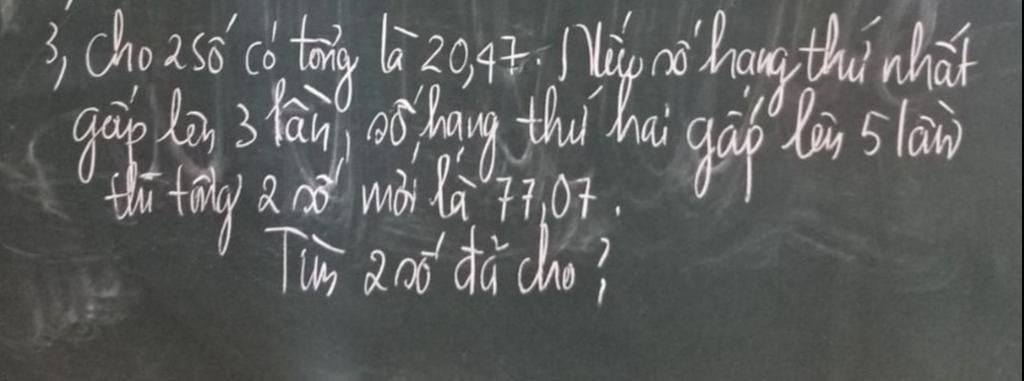 3, Cho 2 số có tổng là 20,47. Nếu số hạng thứ nhất
gấp lên 3 lần, số hạng thứ hai gấp lên 5 lần
thì tổng 2 số mới là 77,07.
Tìm 2 số đã cho?